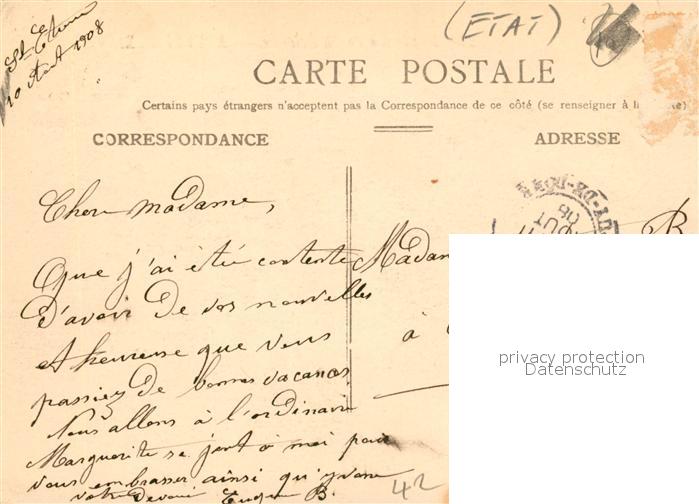 St Etienne
10 Aout 1908
(ETAT)
CARTE POSTALE
Certains pays étrangers n'acceptent pas la Correspondance de ce côté (se renseigner à la
CORRESPONDANCE
ADRESSE
Chere madame,
Que j'ai étée contente
D'avoir De vos nouvelles
et heureuse que vous
passiez De bonnes vacances
Nous allons à l'ordinaire
Marguerite se joint à moi pour
vous embrasser ainsi qu'yvonne
votre Devouée Eugénie B.
Madam
B
à
42
privacy protection
Datenschutz